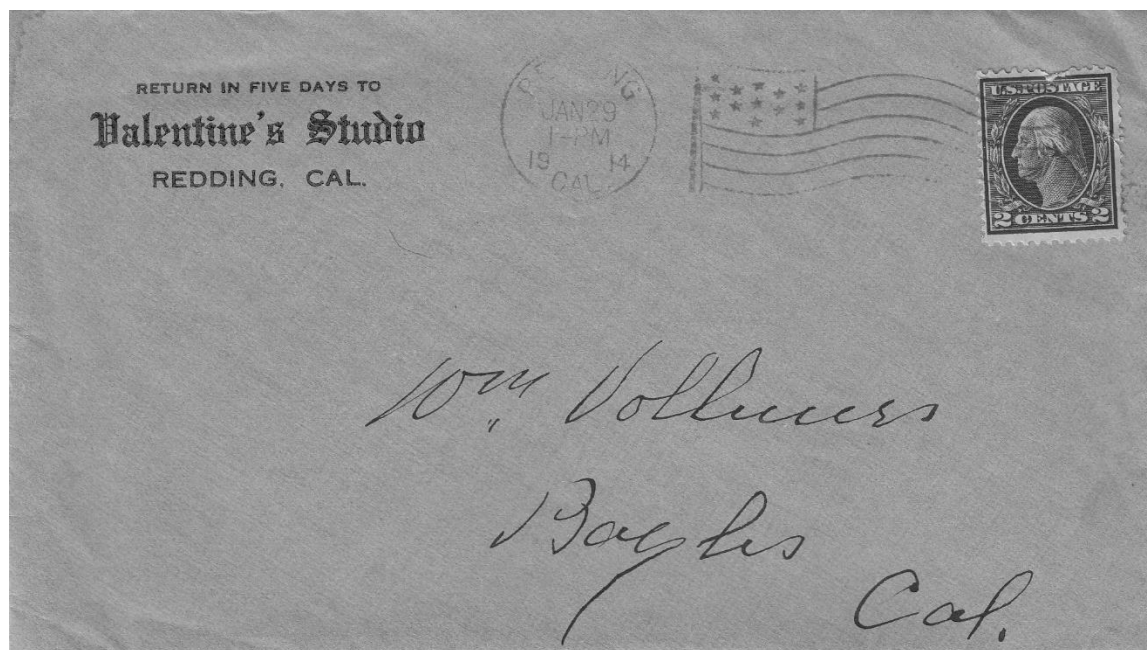 RETURN IN FIVE DAYS TO
Valentine's Studio
REDDING, CAL.
REDDING
JAN 29
1-PM
19 14
CAL.
U.S. POSTAGE
2 CENTS 2
Wm Vollmers
Bayles
Cal.